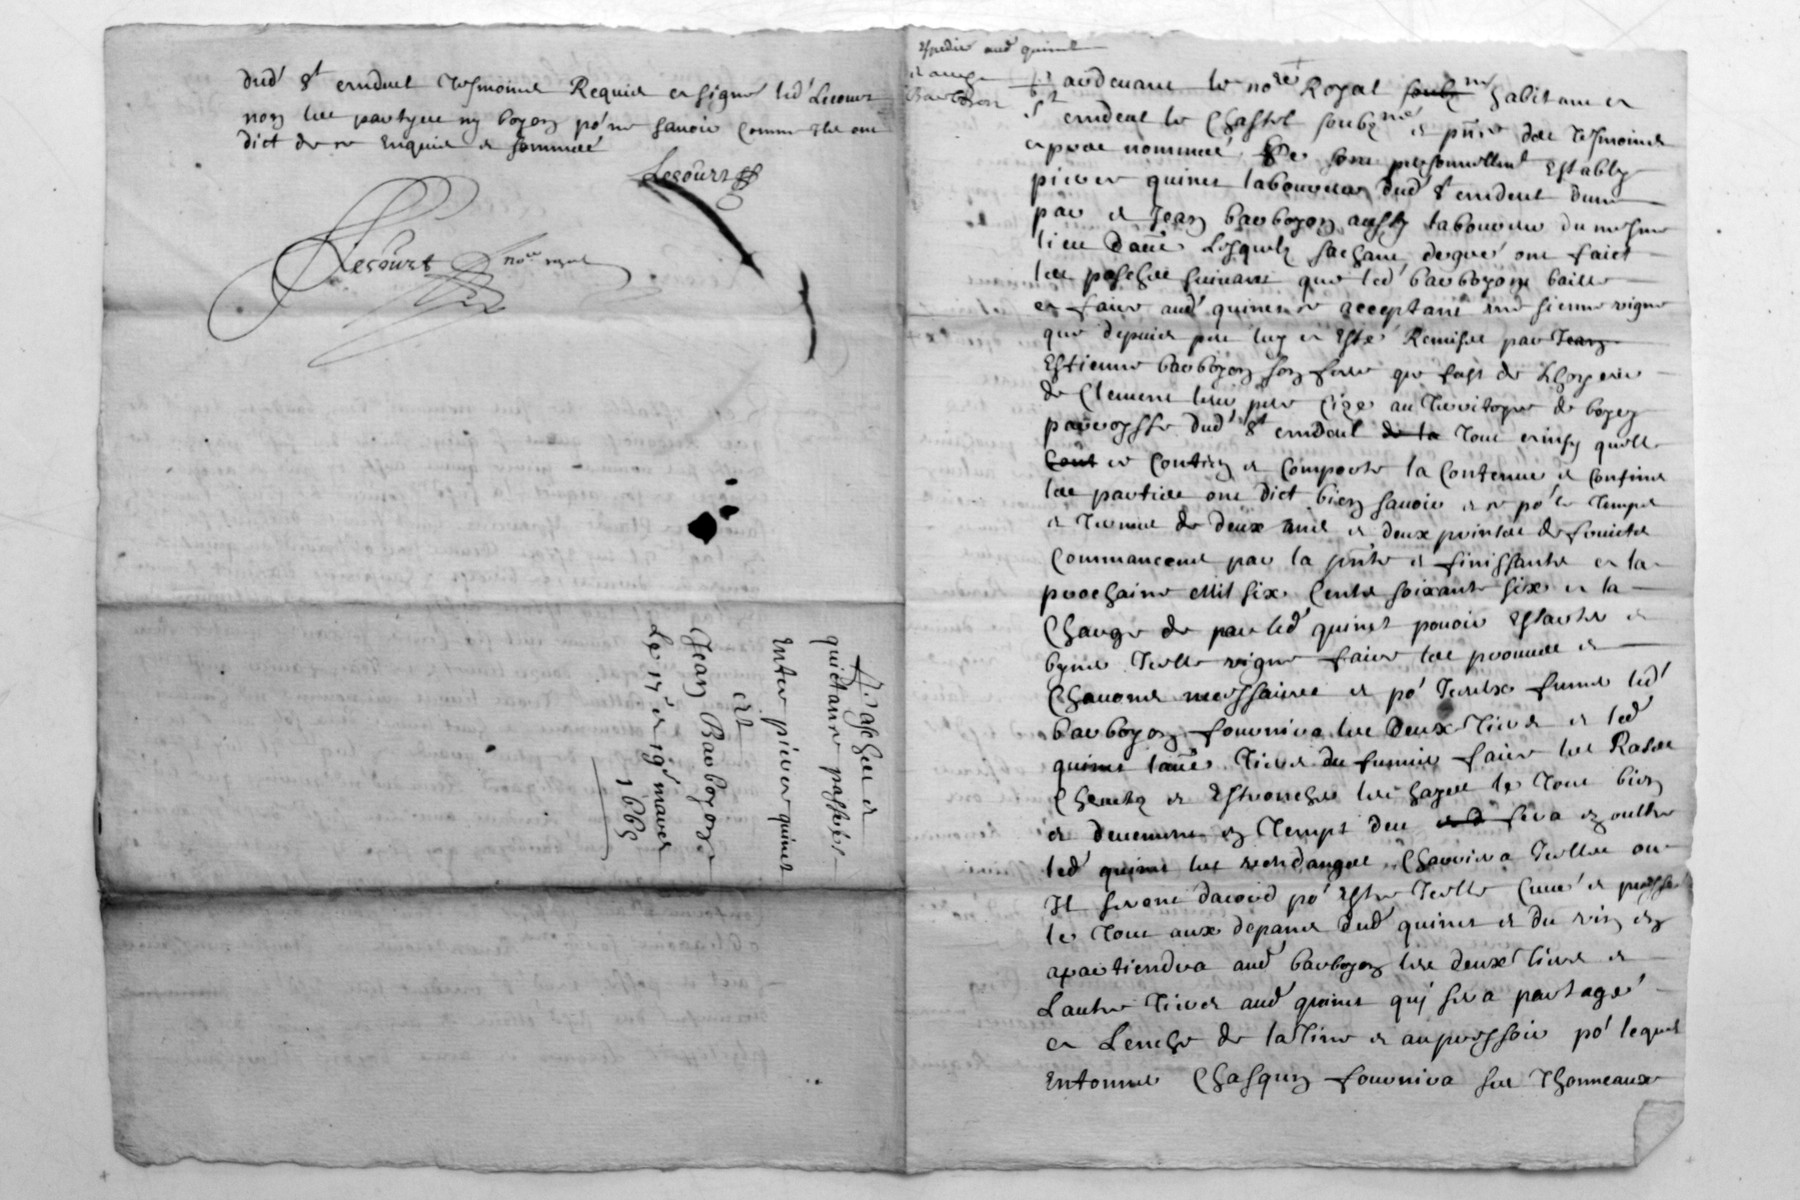 dud' St ermdeul tesmoins Requis et signé led' Lecourt
non les partyes ny boyon po' ne savoir comme Ils ont
dict de ce Enquis et sommés
Lecourt
Lecourt no.re royal
paches et
quictance passées
Entre pierre quinet
et
Jean Barboyon
Le 17e et 19e mars
1665
Expedie aud quinet
et aussy
Barboyon
Pardevant le no.re Royal soubz.né habitant et
St ermdeul le Chastel soubz.né et pnce des tesmoins
apres nommés se sont personnellemt Estably
pierre quinet laboureur dud' St ermdeul dune
part et Jean barboyon aussy laboureur du mesme
lieu dautre Lesquelz sachant de gré ont faict
les pasches suivant que led' barboyon baille
a faire aud' quinet ce acceptant une sienne vigne
que depuis peu luy a Esté Remise par Jean
Estienne barboyon son frere que fust de Lhoyerie
de Clement leur pere size au territoyre de boyen
parroysse dud' St ermdeul de la tout ainsy quelle
Cont se contien et comporte la contenue et confins
les parties ont dict bien savoir et ce po' le temps
et terme de deux ans et deux prinses de fruictz
Commancent par la pnte et finissante a la
prochaine Mil six Centz soixante six a la
Charge de par led' quinet pouoir Estartes et
byner icelle vigne faire les prouues et
Chavons necessaires et po' iceux fumer led'
barboyon fournira les deux tiers et led'
quinet lautre tiers du fumier faire les Rases
Chentz et Estronches les hayes le tout bien
et deuement en temps deu et a sera en oultre
led' quinet les vendanges Charriera icelles ou
Il seront dacord po' Estre icelle Cuvé et pressé
le tout aux depans dud' quinet et du vin en
apartiendra aud' barboyon les deux tiers et
Lautre tiers aud' quinet qui sera partagé
a Lenche de la tine et au pressoir po' lequel
Entonner Chasqun fournira ses thonneaux